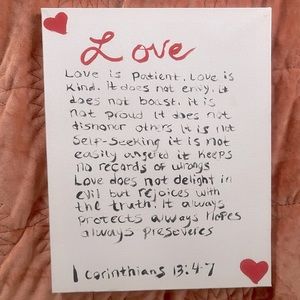 Love
Love is patient, Love is
kind. it does not envy, it
does not boast, it is
not proud it does not
dishonor others it is not
self-seeking it is not
easily angered it keeps
no records of wrongs
Love does not delight in
evil but rejoices with
the truth. It always
protects always Hopes
always preseveres
1 Corinthians 13:4-7